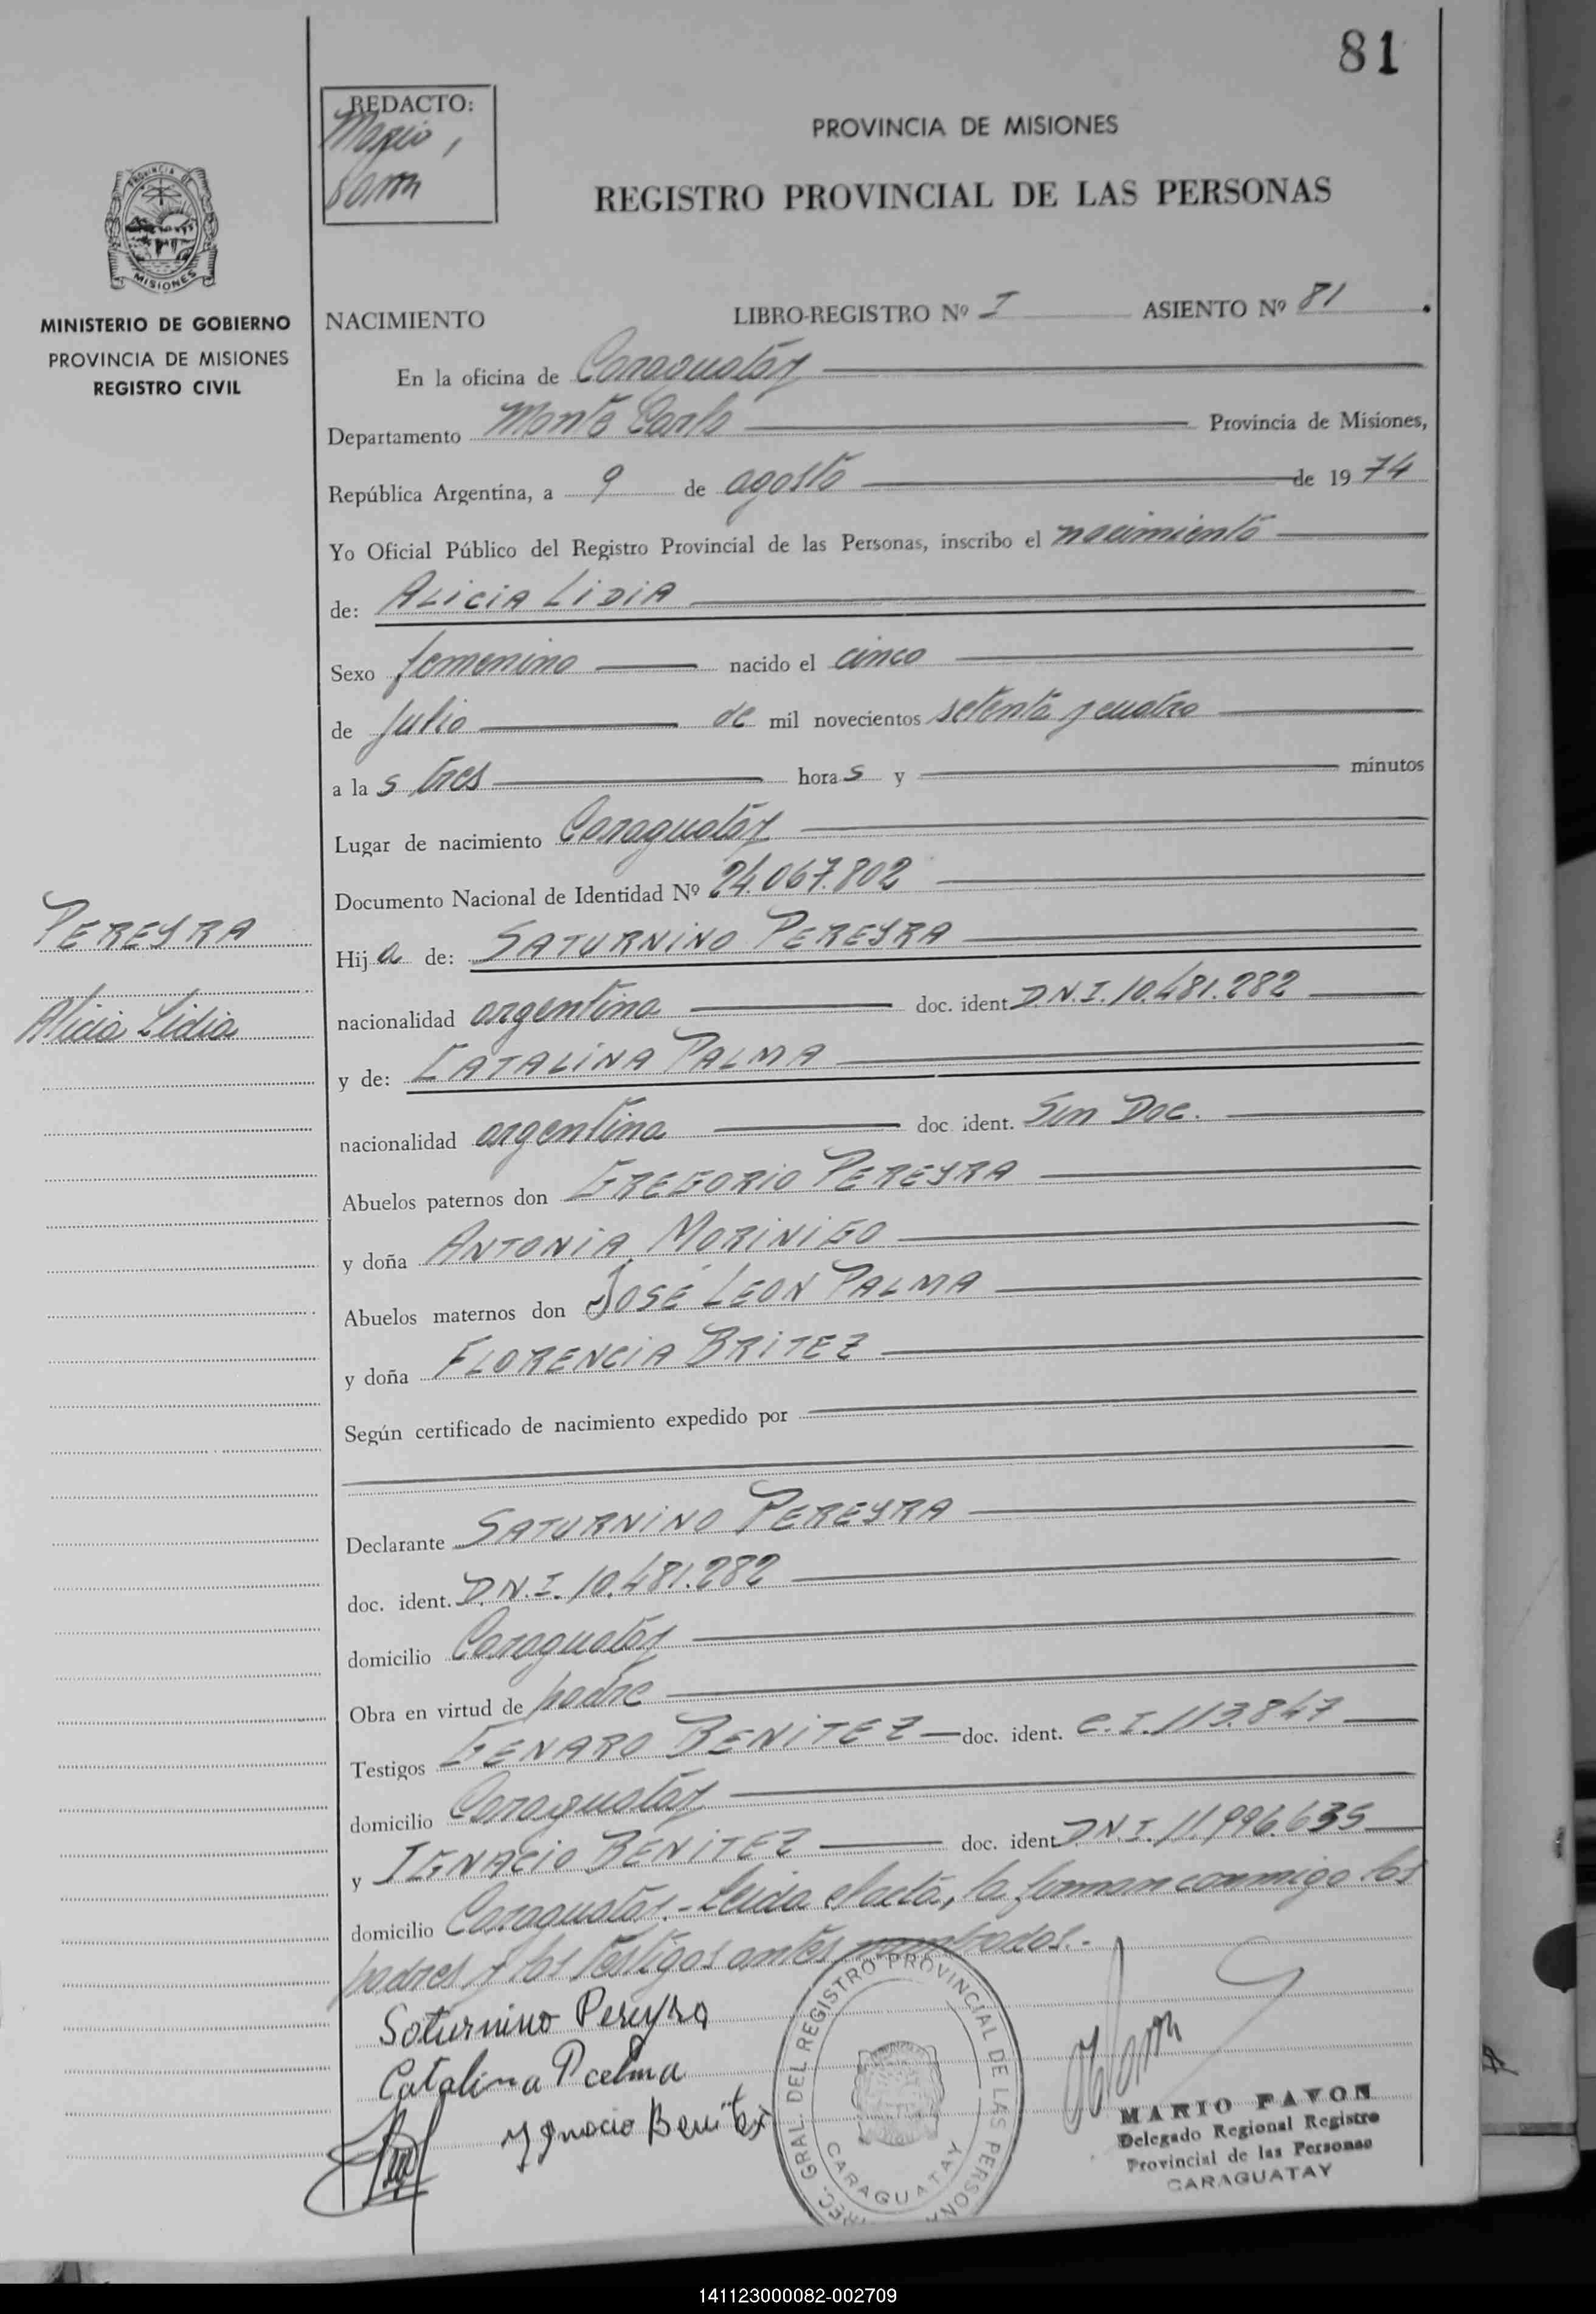 81
REDACTO:
Mario
PROVINCIA DE MISIONES
REGISTRO PROVINCIAL DE LAS PERSONAS
PROVINCIA DE
MISIONES
MINISTERIO DE GOBIERNO
PROVINCIA DE MISIONES
REGISTRO CIVIL
NACIMIENTO LIBRO-REGISTRO Nº I ASIENTO Nº 81.
En la oficina de Caraguatáy
Departamento Monte Carlo Provincia de Misiones,
República Argentina, a 9 de agosto de 1974
Yo Oficial Público del Registro Provincial de las Personas, inscribo el nacimiento
de: ALICIA LIDIA
Sexo femenino nacido el cinco
de Julio de mil novecientos setenta y cuatro
a las tres horas y minutos
Lugar de nacimiento Caraguatáy
Documento Nacional de Identidad Nº 24.067.802
PEREYRA
Hija de: SATURNINO PEREYRA
Alicia Lidia
nacionalidad argentina doc. ident D.N.I. 10.481.282
y de: CATALINA PALMA
nacionalidad argentina doc ident. Sin Doc.
Abuelos paternos don GREGORIO PEREYRA
y doña ANTONIA MORINIGO
Abuelos maternos don JOSÉ LEON PALMA
y doña FLORENCIA BRITEZ
Según certificado de nacimiento expedido por
Declarante SATURNINO PEREYRA
doc. ident. D.N.I. 10.481.282
domicilio Caraguatáy
Obra en virtud de padre
Testigos GENARO BENITEZ doc. ident. C.I. 113.847
domicilio Caraguatáy
y IGNACIO BENITEZ doc. ident D.N.I. 11.996.635
domicilio Caraguatáy.- Leida el acta, la firman conmigo los
padres y los testigos antes nombrados.-
Saturnino Pereyra
Catalina Palma
Ygnacio Benitez
REC. GRAL. DEL REGISTRO PROVINCIAL DE LAS PERSONAS
CARAGUATAY
MARIO PAVON
Delegado Regional Registro
Provincial de las Personas
CARAGUATAY
141123000082-002709